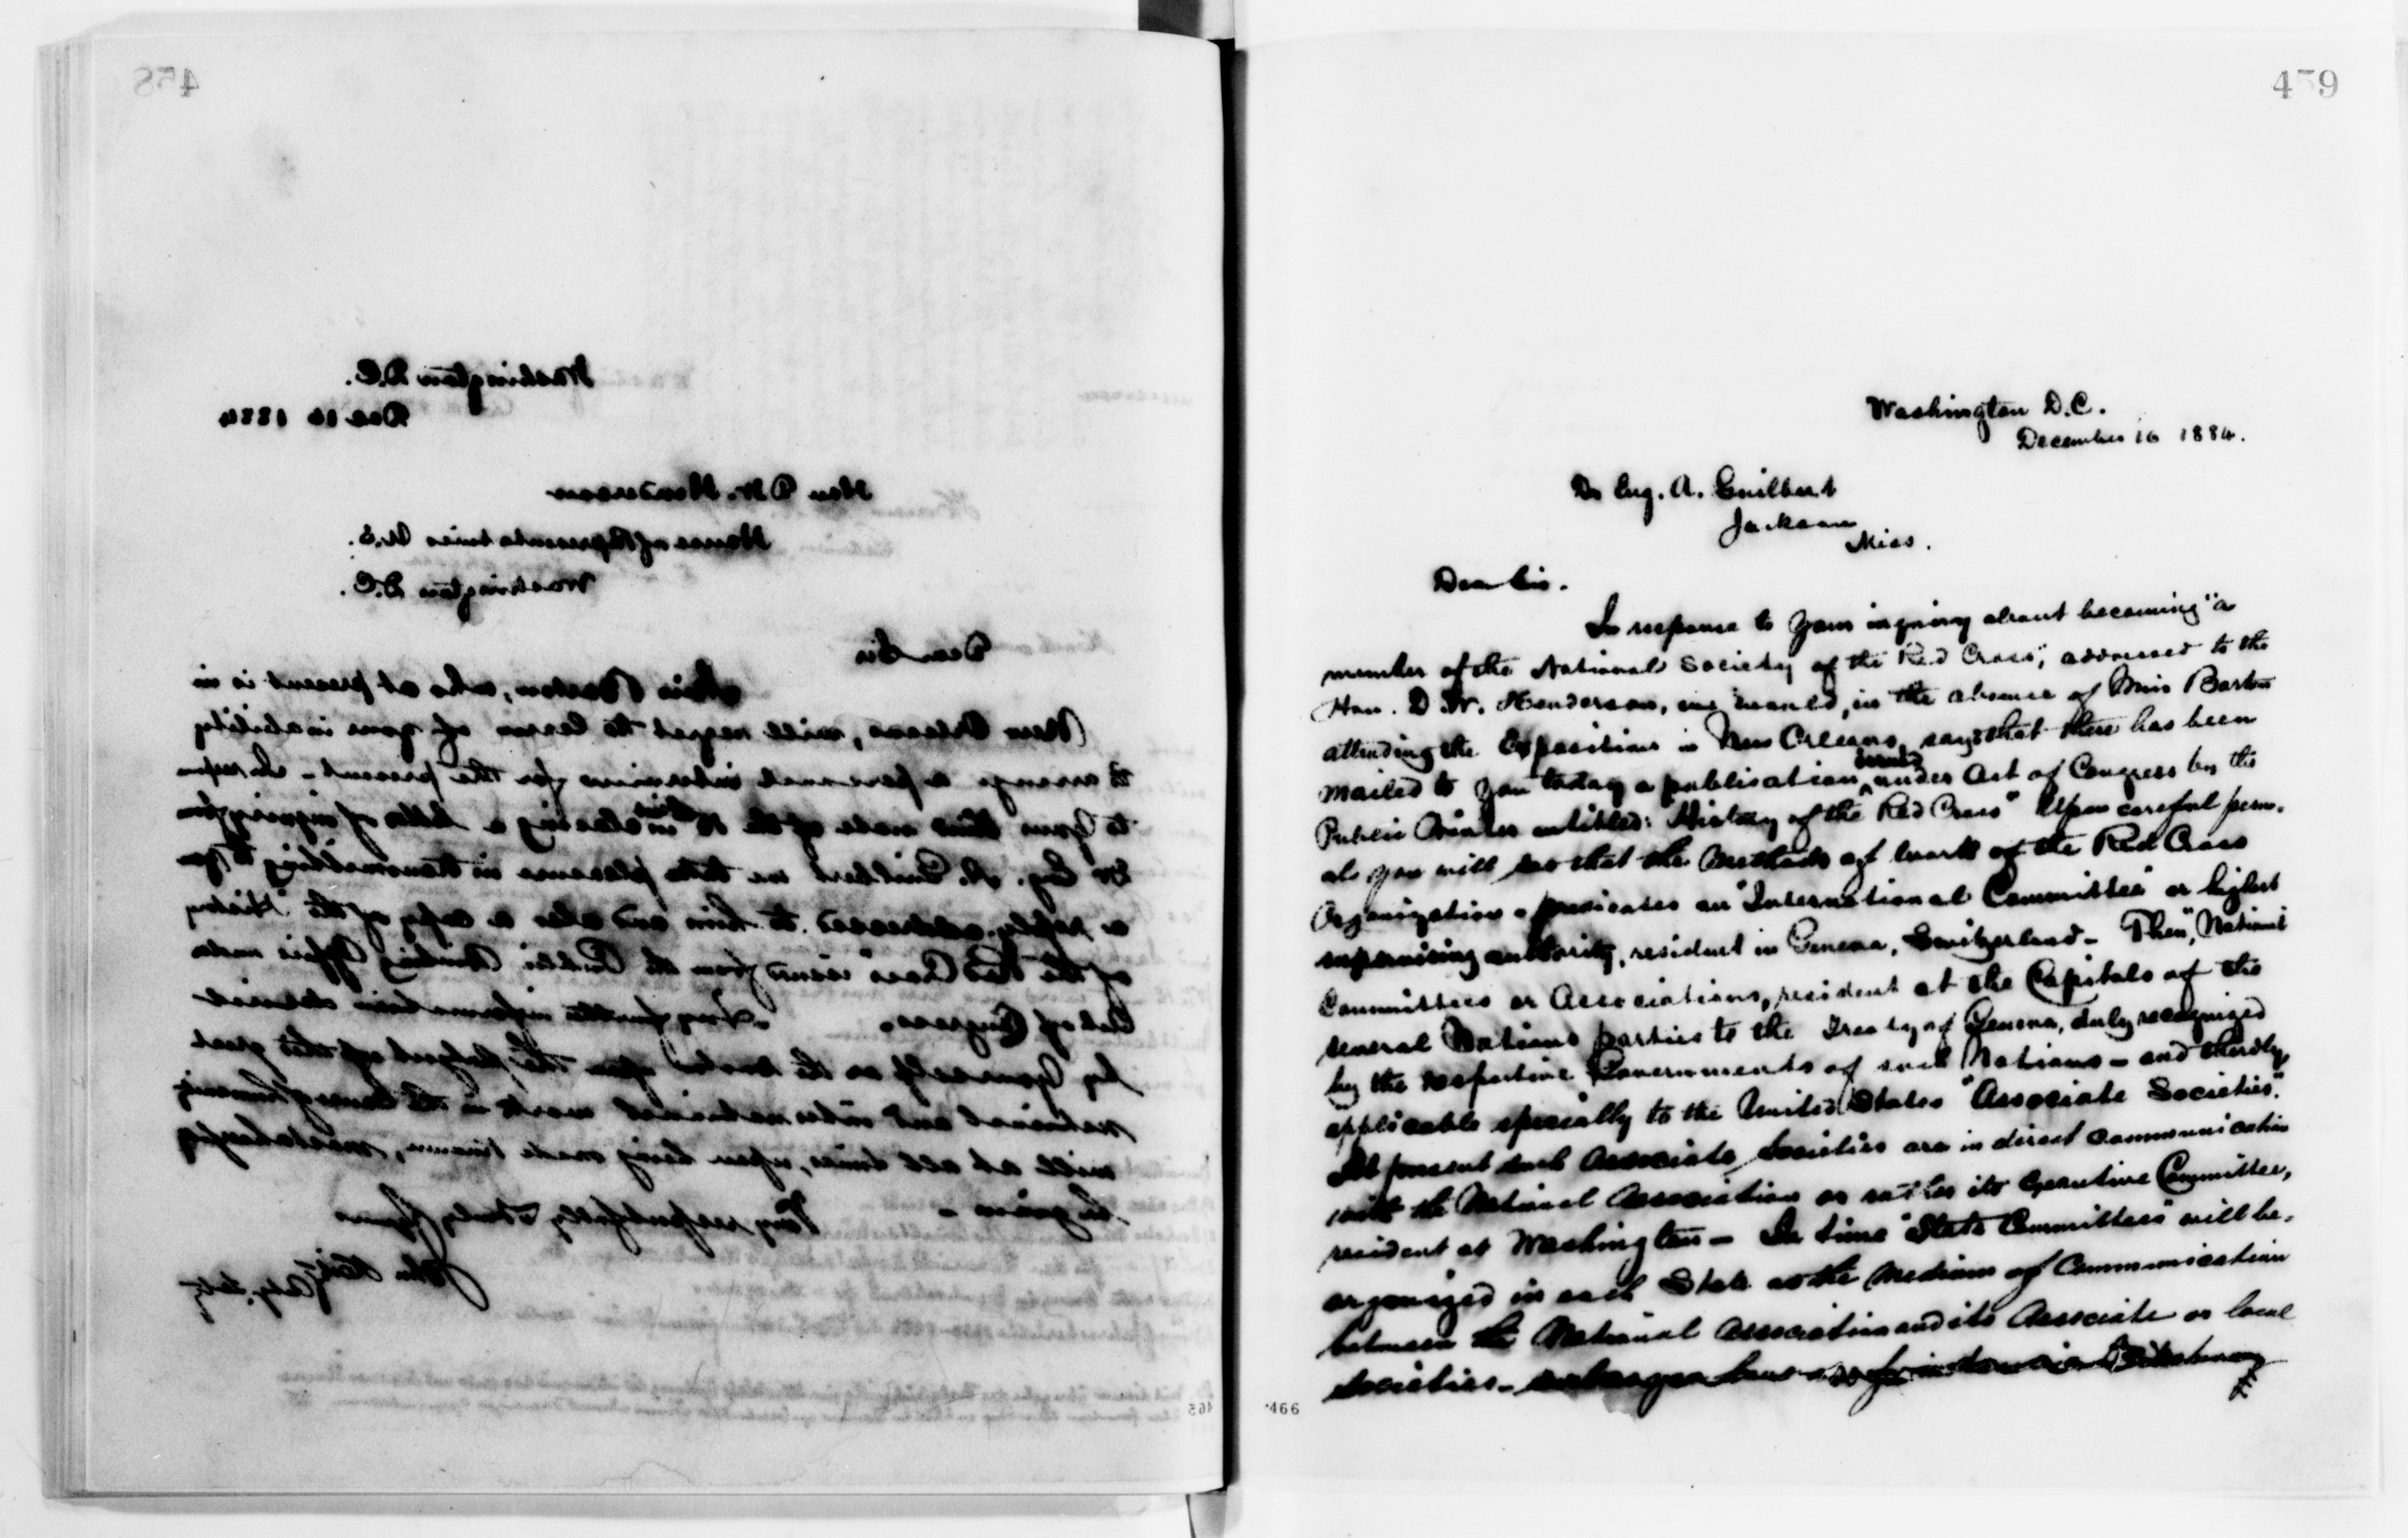 458
Washington D.C.
Dec 16 1884
Hon D. W. Henderson
House of Representatives U.S.
Washington D.C.
Dear Sir
Miss Barton, who at present is in
New Orleans, will regret to learn of your inability
to arrange a personal interview for the present - In
to your note of the inclosing a letter of inquiry from
Dr Eug. A. Guilbert we take pleasure in transmitting to you
a reply addressed to him and also a copy of the "History
of the Red Cross" issued from the Public Printing Office under
Act of Congress. Any further information desired
by yourself or the Doctor upon the subject of the great
national and international work in the cause of humanity
will at all times, upon being made known, most cheerfully
be given -
Very respectfully Truly Yours
John
465
459
Washington D.C.
December 16 1884.
Dr Eug. A. Guilbert
Jackson
Miss.
Dear Sir.
In response to your inquiry about becoming "a
member of the National Society of the Red Cross", addressed to the
Hon. D. W. Henderson, we would, in the absence of Miss Barton
attending the Exposition in New Orleans, say that there has been
mailed to you today a publication issued under Act of Congress by the
Public Printer entitled: History of the Red Cross" Upon careful perus-
al you will see that the methods of work of the Red Cross
Organization an "International Committee" or highest
supervising authority, resident in Geneva, Switzerland - Then, "National
Committees or Associations, resident at the Capitals of the
several Nations parties to the Treaty of Geneva, duly recognized
by the respective Governments of such Nations - and thirdly,
applicable specially to the United States "Associate Societies".
At present such Associate Societies are in direct communication
with the National Association or rather its Executive Committee,
resident at Washington - In time "State Committees" will be
organized in each State as the medium of Communication
between the National Association and its Associate or local
Societies -
466